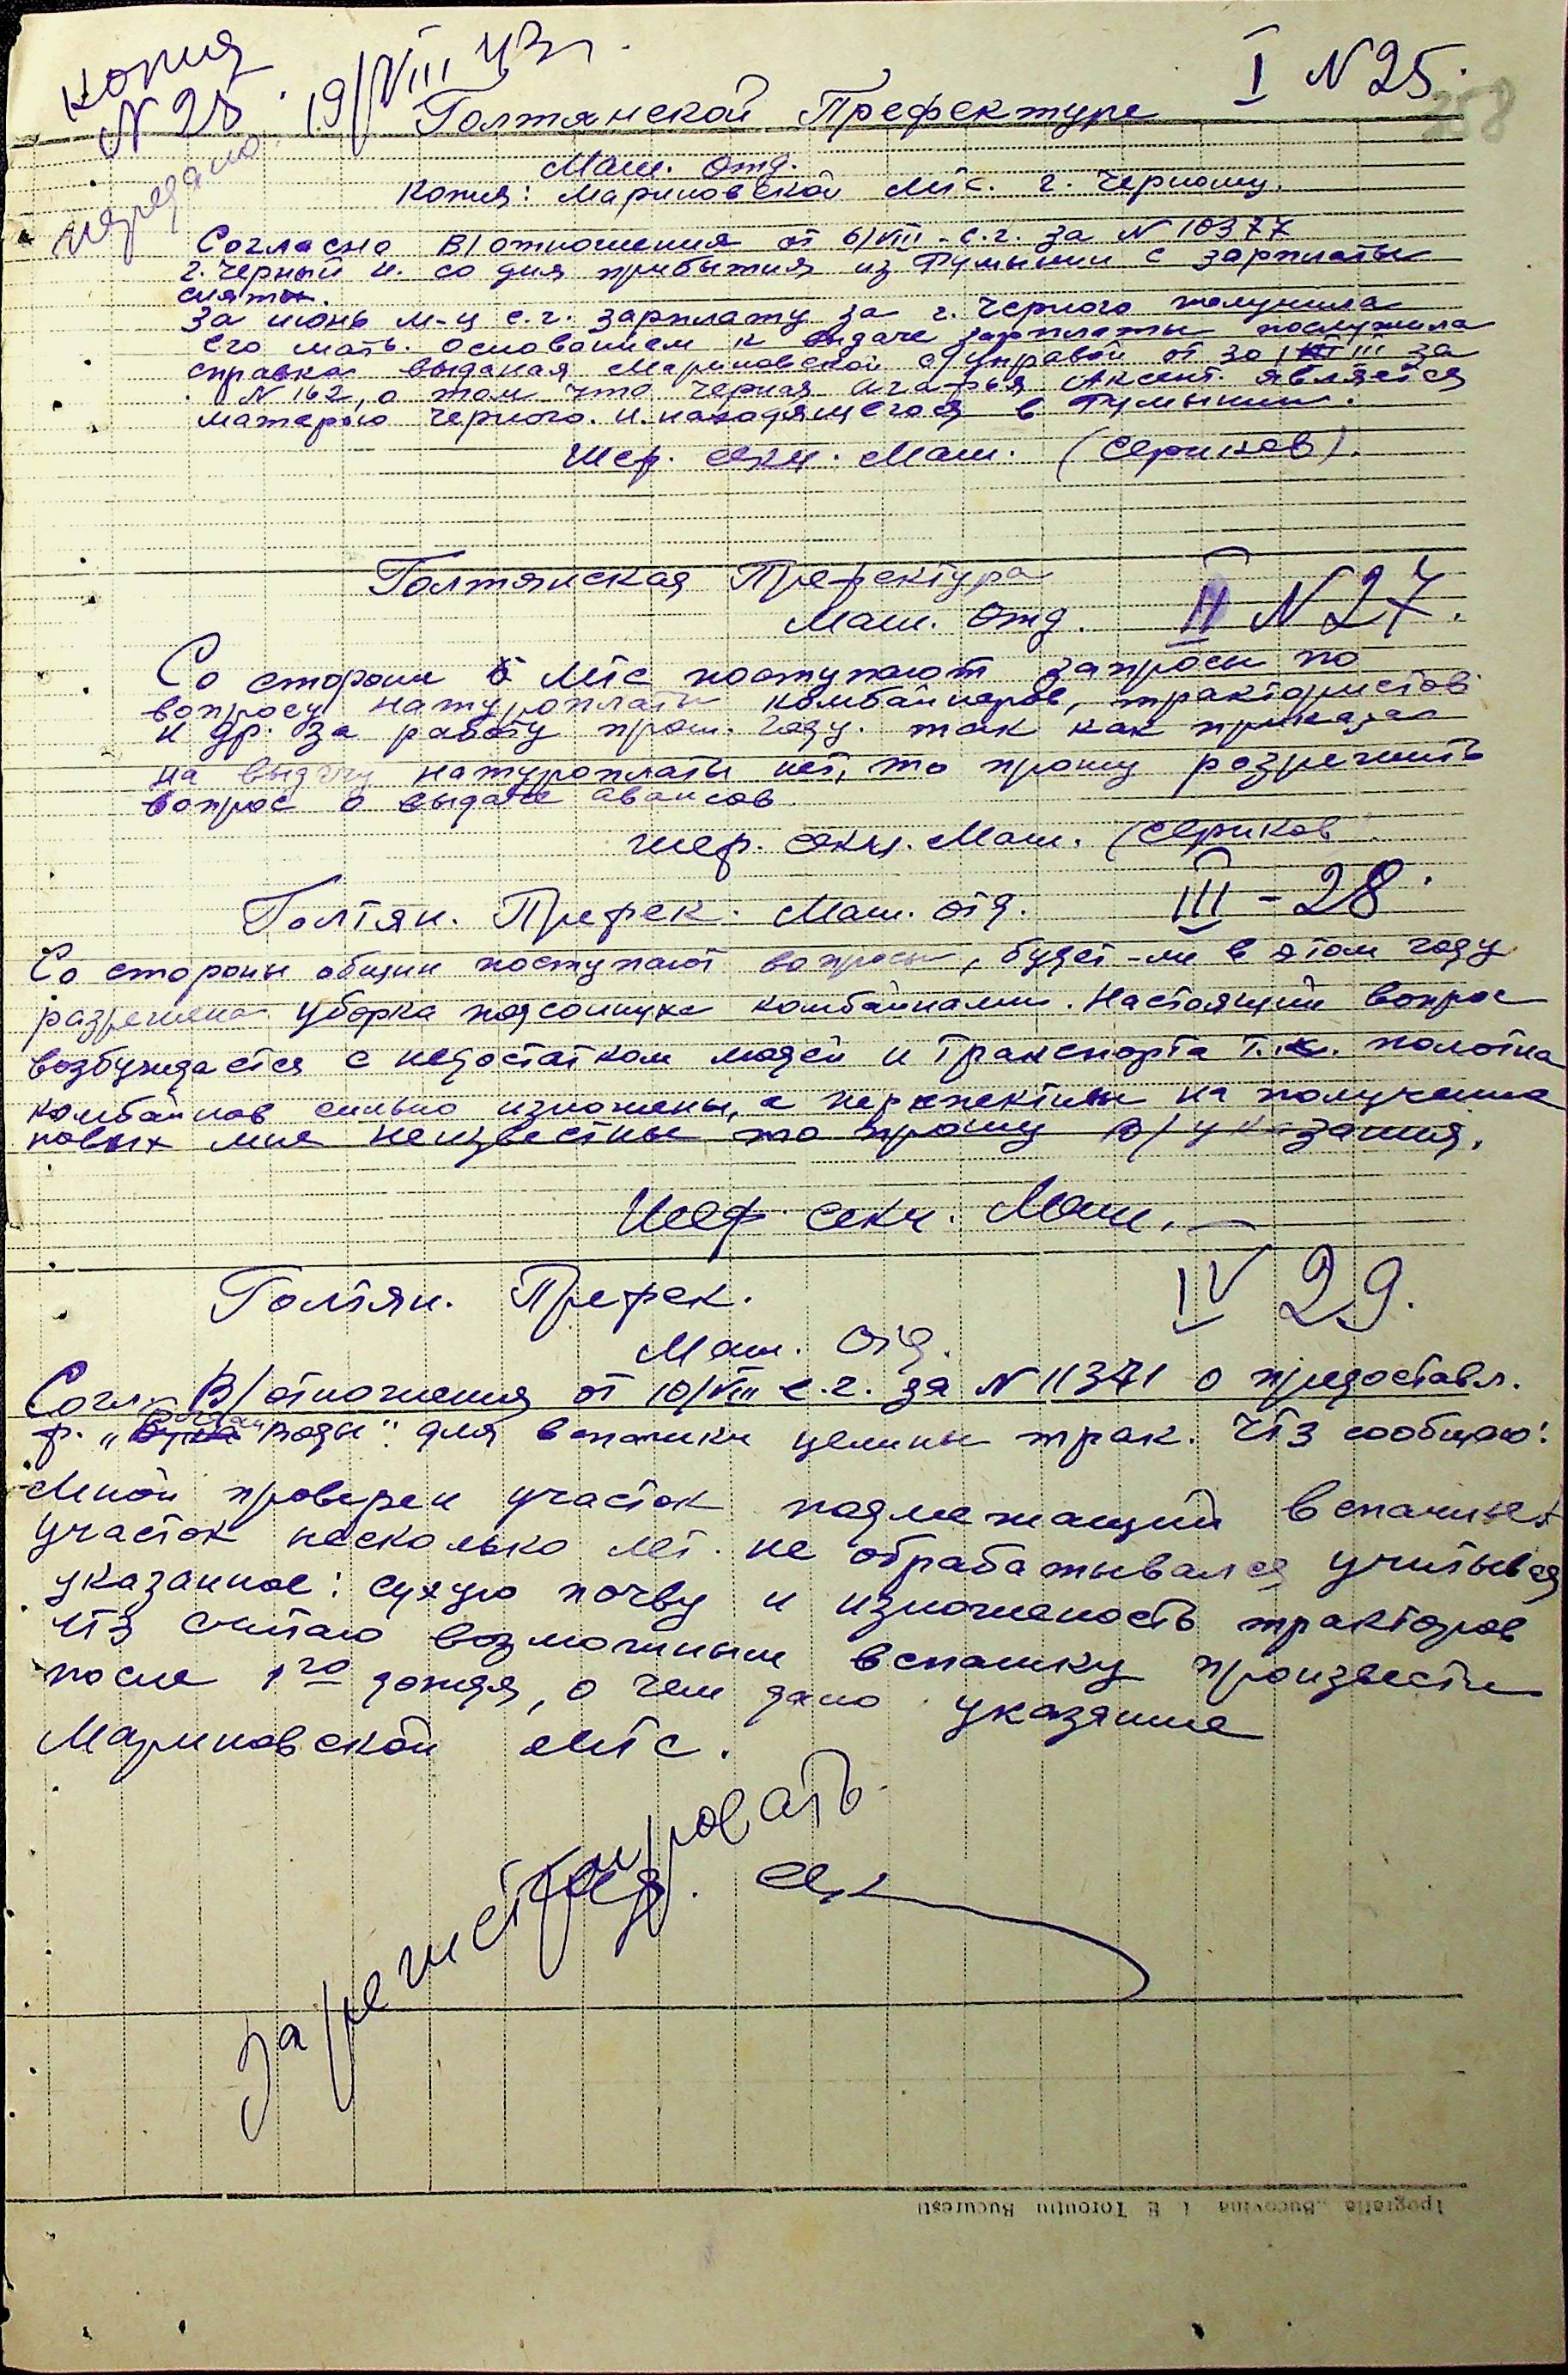 копия
N 28. 19/VIII 43 г.
передано
I N 25.
258
Голтянской Префектуре
Маш. Отд.
Копия: Мариновской МТС. г. Черному.
Согласно В/отношения от 6/VIII - с.г. за N 10377
г. Черный И. со дня прибытия из Румынии с зарплаты
сняты.
За июнь м-ц с.г. зарплату за г. Черного получила
его мать. Основанием к выдаче зарплаты послужила
справка выданая Мариновской с/управой от 30/III за
N 162, о том что Черная Агафья Аксент. является
матерью Черного. И. находящегося в Румынии.
Шеф. секц. Маш. (Сериков).
Голтянская Префектура
Маш. Отд. II N 27.
Со стороны МТС поступают запросы по
вопросу натуроплаты комбайнеров, трактористов
и др. за работу прош. году. так как приказа
на выдачу натуроплаты нет, то прошу разрешить
вопрос о выдаче авансов.
шеф. секц. Маш. (Сериков
Голтян. Префек. Маш. отд. III - 28.
Со стороны общин поступают вопросы, будет-ли в этом году
разрешена уборка подсолнуха комбайнами. Настоящий вопрос
возбуждается с недостатком людей и транспорта т.к. полотна
комбайнов сильно изношены, а перспективы на получение
новых мне неизвестны то прошу В/указания.
Шеф секц. Маш.
Голтян. Префек. IV 29.
Маш. Отд.
Согл. В/отношения от 10/VIII с.г. за N 11371 о предоставл.
ф. " воды". для вспашки целины трак. ЧТЗ сообщаю:
Мной проверен участок подлежащий вспашке
участок несколько лет не обрабатывался учитывая
указанное: сухую почву и изношеность тракторов
ЧТЗ считаю возможным вспашку произвести
после 1го дождя, о чем дано указание
Мариновской МТС.
Шеф. секц.
зарегистрировать
Tipografia „Bucovina" I E Toroutiu Bucuresti